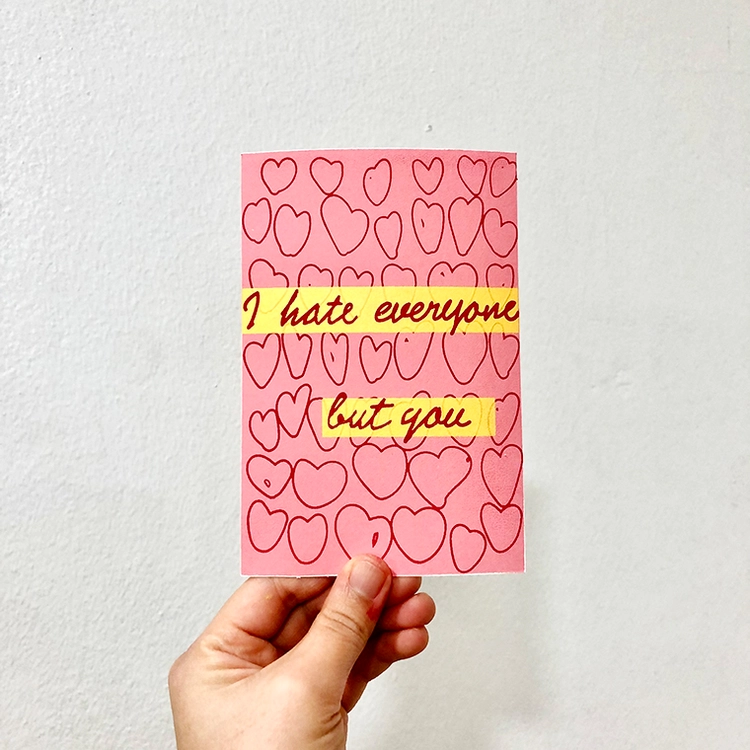 I hate everyone
but you